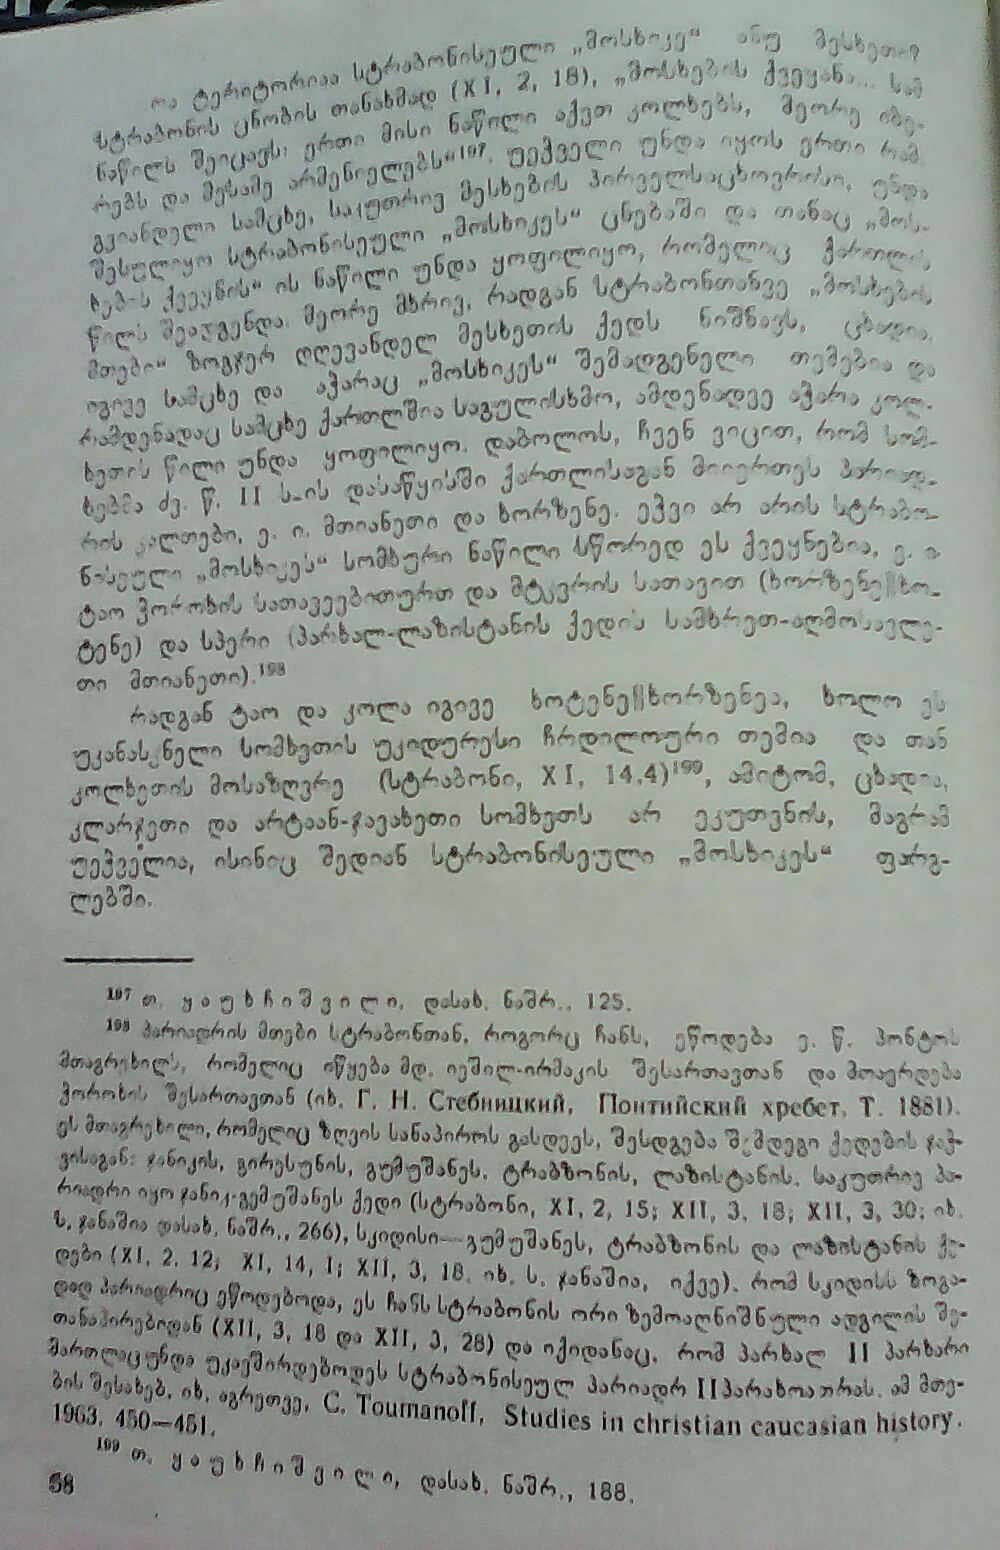 რა ტერიტორიაა სტრაბონისეული „მოსხიკე“ ანუ მესხეთი?
სტრაბონის ცნობის თანახმად (XI, 2, 18), „მოსხების ქვეყანა... სამ
ნაწილს შეიცავს: ერთი მისი ნაწილი აქვთ კოლხებს, მეორე იბე-
რებს და მესამე არმენიელებს“¹⁹⁷. უეჭველი უნდა იყოს ერთი რამ
გვიანდელი სამცხე, საკუთრივ მესხების პირველსაცხოვრისი, უნდა
შესულიყო სტრაბონისეული „მოსხიკეს“ ცნებაში და თანაც „მოს-
ხების ქვეყნის“ ის ნაწილი უნდა ყოფილიყო, რომელიც ქართლის
წილს შეადგენდა. მეორე მხრივ, რადგან სტრაბონთანვე „მოსხების
მთები“ ზოგჯერ დღევანდელ მესხეთის ქედს ნიშნავს, ცხადია,
იგივე სამცხე და აჭარაც „მოსხიკეს“ შემადგენელი თემებია და
რამდენადაც სამცხე ქართლშია საგულისხმო, ამდენადვე აჭარა კოლ-
ხეთის წილი უნდა ყოფილიყო. დაბოლოს, ჩვენ ვიცით, რომ სომ-
ხებმა ძვ. წ. II ს-ის დასაწყისში ქართლისაგან მიიერთეს პარიად-
რის კალთები, ე. ი. მთიანეთი და ხორზენე. ეჭვი არ არის სტრაბო-
ნისეული „მოსხიკეს“ სომხური ნაწილი სწორედ ეს ქვეყნებია, ე. ი.
ტაო ჭოროხის სათავეებითურთ და მტკვრის სათავით (ხორზენე||ხო-
ტენე) და სპერი (პარხალ-ლაზისტანის ქედის სამხრეთ-აღმოსავლე-
თი მთიანეთი).¹⁹⁸
რადგან ტაო და კოლა იგივე ხოტენე||ხორზენეა, ხოლო ეს
უკანასკნელი სომხეთის უკიდურესი ჩრდილოური თემია და თან
კოლხეთის მოსაზღვრე (სტრაბონი, XI, 14,4)¹⁹⁹, ამიტომ, ცხადია,
კლარჯეთი და არტაან-ჯავახეთი სომხეთს არ ეკუთვნის, მაგრამ
უეჭველია, ისინიც შედიან სტრაბონისეული „მოსხიკეს“ ფარგ-
ლებში.
¹⁹⁷ თ. ყაუხჩიშვილი, დასახ. ნაშრ., 125.
¹⁹⁸ პარიადრის მთები სტრაბონთან, როგორც ჩანს, ეწოდება ე. წ. პონტოს
მთაგრეხილს, რომელიც იწყება მდ. იეშილ-ირმაკის შესართავთან და მთავრდება
ჭოროხის შესართავთან (იხ. Г. Н. Стебницкий, Понтийский хребет. Т. 1881).
ეს მთაგრეხილი, რომელიც ზღვის სანაპიროს გასდევს, შესდგება შემდეგი ქედების ჯაჭ-
ვისაგან: ჯანიკის, გირესუნის, გუმუშანეს, ტრაბზონის, ლაზისტანის. საკუთრივ პა-
რიადრი იყო ჯანიკ-გუმუშანეს ქედი (სტრაბონი, XI, 2, 15; XII, 3, 18; XII, 3, 30; იხ.
ს. ჯანაშია დასახ. ნაშრ., 266), სკიდისი—გუმუშანეს, ტრაბზონის და ლაზისტანის ქე-
დები (XI, 2, 12; XI, 14, I; XII, 3, 18. იხ. ს. ჯანაშია, იქვე). რომ სკიდისს ზოგა-
დად პარიადრიც ეწოდებოდა, ეს ჩანს სტრაბონის ორი ზემოაღნიშნული ადგილის შე-
თანაპირებიდან (XII, 3, 18 და XII, 3, 28) და იქიდანაც, რომ პარხალ II პარხარი
მართლაც უნდა უკავშირდებოდეს სტრაბონისეულ პარიადრ II პარახოათრას. ამ მთე-
ბის შესახებ, იხ. აგრეთვე, C. Toumanoff, Studies in christian caucasian history.
1963, 450—451.
¹⁹⁹ თ. ყაუხჩიშვილი, დასახ. ნაშრ., 188.
58